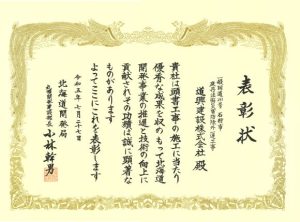 表彰状
一般国道231号 石狩市
道興建設株式会社 殿
貴社は頭書工事の施工に当たり
優秀な成果を収めもって北海道
開発事業の推進と技術の向上に
貢献されその功績は誠に顕著な
ものがあります
よってここにこれを表彰します
令和五年七月二十七日
北海道開発局
札幌開発建設部長 小林幹男